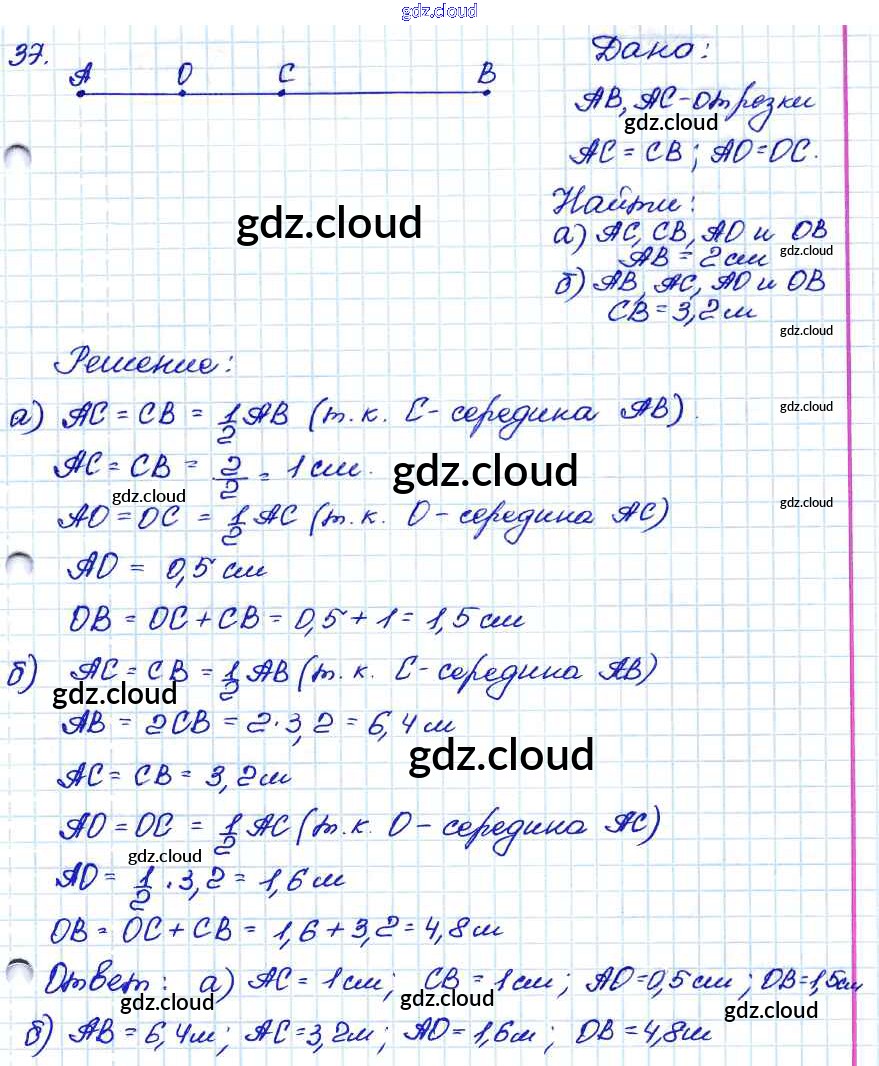 gdz.cloud
37.
A O C B
Дано:
AB, AC - отрезки
gdz.cloud
AC = CB ; AO = OC.
Найти:
gdz.cloud
а) AC, CB, AO и OB
AB = 2 см
gdz.cloud
б) AB, AC, AO и OB
CB = 3,2 м
gdz.cloud
Решение:
а) AC = CB = 1/2 AB (т.к. C - середина AB).
gdz.cloud
AC = CB = 2/2 = 1 см.
gdz.cloud
gdz.cloud
AO = OC = 1/2 AC (т.к. O - середина AC)
gdz.cloud
AO = 0,5 см
OB = OC + CB = 0,5 + 1 = 1,5 см
б) AC = CB = 1/2 AB (т.к. C - середина AB)
gdz.cloud
AB = 2CB = 2·3,2 = 6,4 м
gdz.cloud
AC = CB = 3,2 м
AO = OC = 1/2 AC (т.к. O - середина AC)
gdz.cloud
AO = 1/2 · 3,2 = 1,6 м
OB = OC + CB = 1,6 + 3,2 = 4,8 м
Ответ: а) AC = 1 см; CB = 1 см; AO = 0,5 см; OB = 1,5 см
gdz.cloud gdz.cloud gdz.cloud
б) AB = 6,4 м; AC = 3,2 м; AO = 1,6 м; OB = 4,8 м